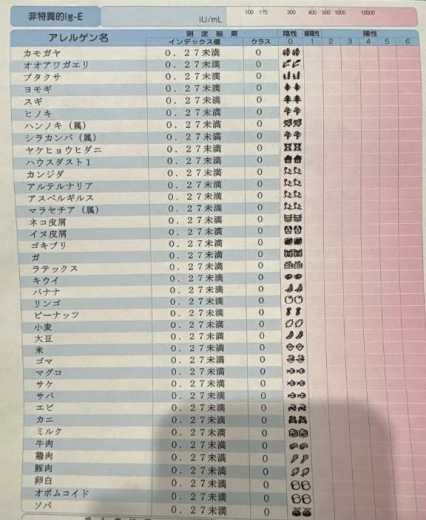 非特異的Ig-E IU/mL 100 175 300 400 500 1000 10000
アレルゲン名 測定結果 陰性 偽陽性 陽性
インデックス値 クラス 0 1 2 3 4 5 6
カモガヤ 0.27未満 0
オオアワガエリ 0.27未満 0
ブタクサ 0.27未満 0
ヨモギ 0.27未満 0
スギ 0.27未満 0
ヒノキ 0.27未満 0
ハンノキ(属) 0.27未満 0
シラカンバ(属) 0.27未満 0
ヤケヒョウヒダニ 0.27未満 0
ハウスダスト1 0.27未満 0
カンジダ 0.27未満 0
アルテルナリア 0.27未満 0
アスペルギルス 0.27未満 0
マラセチア(属) 0.27未満 0
ネコ皮屑 0.27未満 0
イヌ皮屑 0.27未満 0
ゴキブリ 0.27未満 0
ガ 0.27未満 0
ラテックス 0.27未満 0
キウイ 0.27未満 0
バナナ 0.27未満 0
リンゴ 0.27未満 0
ピーナッツ 0.27未満 0
小麦 0.27未満 0
大豆 0.27未満 0
米 0.27未満 0
ゴマ 0.27未満 0
マグロ 0.27未満 0
サケ 0.27未満 0
サバ 0.27未満 0
エビ 0.27未満 0
カニ 0.27未満 0
ミルク 0.27未満 0
牛肉 0.27未満 0
鶏肉 0.27未満 0
豚肉 0.27未満 0
卵白 0.27未満 0
オボムコイド 0.27未満 0
ソバ 0.27未満 0